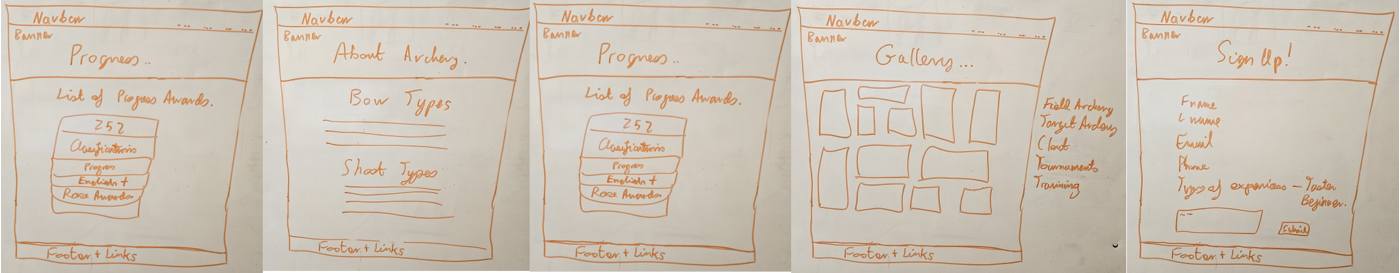 Navbar
Banner
Progress..
List of Progress Awards.
252
Classifications
Progress
English +
Rose Awards
Footer + Links
Navbar
About Archery.
Bow Types
Shoot Types
Footer + Links
Navbar
Banner
Progress..
List of Progress Awards.
252
Classifications
Progress
English +
Rose Awards
Footer + Links
Navbar
Banner
Gallery...
Field Archery
Target Archery
Clout
Tournaments
Training
Footer + Links
Navbar
Banner
Sign Up!
Fname
Lname
Email
Phone
Types of experience - Taster
Beginner.
Submit
Footer + Links